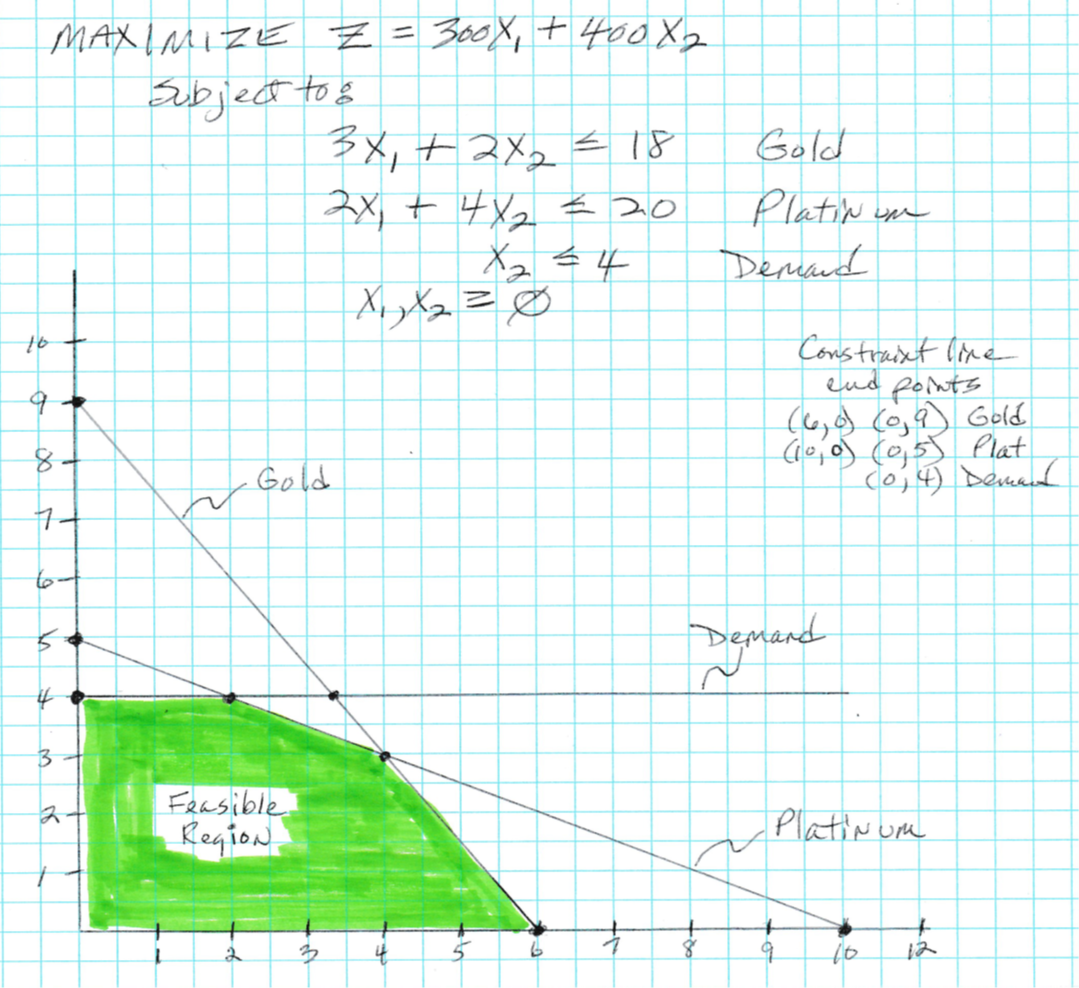 MAXIMIZE Z = 300X₁ + 400X₂
Subject to:
3X₁ + 2X₂ ≤ 18 Gold
2X₁ + 4X₂ ≤ 20 Platinum
X₂ ≤ 4 Demand
X₁, X₂ ≥ Ø
10
Constraint line
end points
9
(6,0) (0,9) Gold
8
(10,0) (0,5) Plat
(0,4) Demand
Gold
7
6
5
Demand
4
3
2
Feasible
Region
Platinum
1
1 2 3 4 5 6 7 8 9 10 12